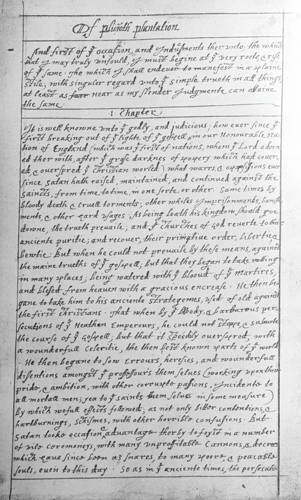 Of plimoth plantation.
And first of yᵉ occasion, and Indusments ther unto; the which
that I may truly unfould, I must begine at yᵉ very roote & rise
of yᵉ same. The which I shall endevor to manefest in a plaine
stile; with singuler regard unto yᵉ simple trueth in all things,
at least as far near as my slender Judgmente can attaine
the same.
1. Chapter.
It is well knowne unto yᵉ godly, and judicious, how ever since yᵉ
first breaking out of yᵉ lighte of yᵉ gospell, in our Honourable Na-
tion of England (which was yᵉ first of nations, whom yᵉ Lord adorn-
ed ther with, after yᵉ grosse darknes of popery which had cover-
ed, & overspred yᵉ christian world) what warrs, & oppossissions ever
since satan hath raised, maintained, and continued against the
saincts, from time, to time, in one sorte, or other. Some times by
bloody death & cruell torments; other whiles Imprisonments, banish-
ments, & other hard usages. As being loath his kingdom should goe
downe, the trueth prevaile; and yᵉ Churches of God reverte to their
anciente puritie; and recover, their primitive order, libertie, &
bewtie. But when he could not prevaile by these means, against
the maine trueths of yᵉ gospell, but that they began to take rooting
in many places, being watered with yᵉ bloud of yᵉ martires,
and blessed from heaven with a gracious encrease. He then be-
gane to take him to his anciente strategemes, used of old against
the first christians. That when by yᵉ bloody, & barbarous per-
secutions of yᵉ Heathen Emperours, he could not stoppe, & subverte
the course of yᵉ gospell; but that it speedily overspred, with
a wounderfull celeritie, the then best known parts of yᵉ world.
He then begane to sow errours, heresies, and wounderfull
dissentions amongst yᵉ professours them selves (working upon their
pride, & ambition, with other corrupte passions, Incidente to
all mortall men; yea to yᵉ saints them selves in some measure)
by which wofull effects followed; as not only bitter contentions, &
hartburnings, schismes, with other horrible confusions. But
Satan tooke occasion & advantage therby to foyst in a number
of vile ceremoneys, with many unprofitable Cannons, & decrees
which have since been as snares, to many poore, & peaceable
souls, even to this day. So as in yᵉ anciente times, the persecutio